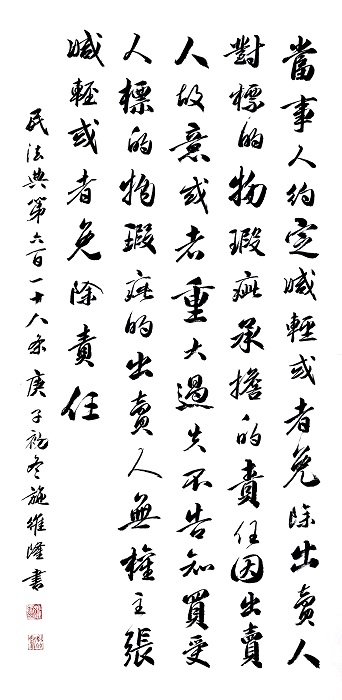 當事人約定減輕或者免除出賣人
對標的物瑕疵承擔的責任因出賣
人故意或者重大過失不告知買受
人標的物瑕疵的出賣人無權主張
減輕或者免除責任
民法典第六百一十八条庚子初冬施維隆書